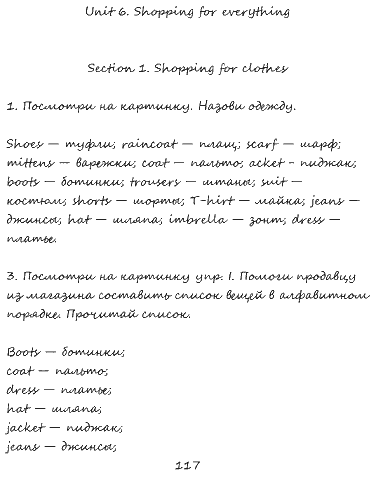 Unit 6. Shopping for everything
Section 1. Shopping for clothes
1. Посмотри на картинку. Назови одежду.
Shoes — туфли; raincoat — плащ; scarf — шарф;
mittens — варежки; coat — пальто; acket - пиджак;
boots — ботинки; trousers — штаны; suit —
костюм; shorts — шорты; T-hirt — майка; jeans —
джинсы; hat — шляпа; imbrella — зонт; dress —
платье.
3. Посмотри на картинку упр. 1. Помоги продавцу
из магазина составить список вещей в алфавитном
порядке. Прочитай список.
Boots — ботинки;
coat — пальто;
dress — платье;
hat — шляпа;
jacket — пиджак;
jeans — джинсы;
117